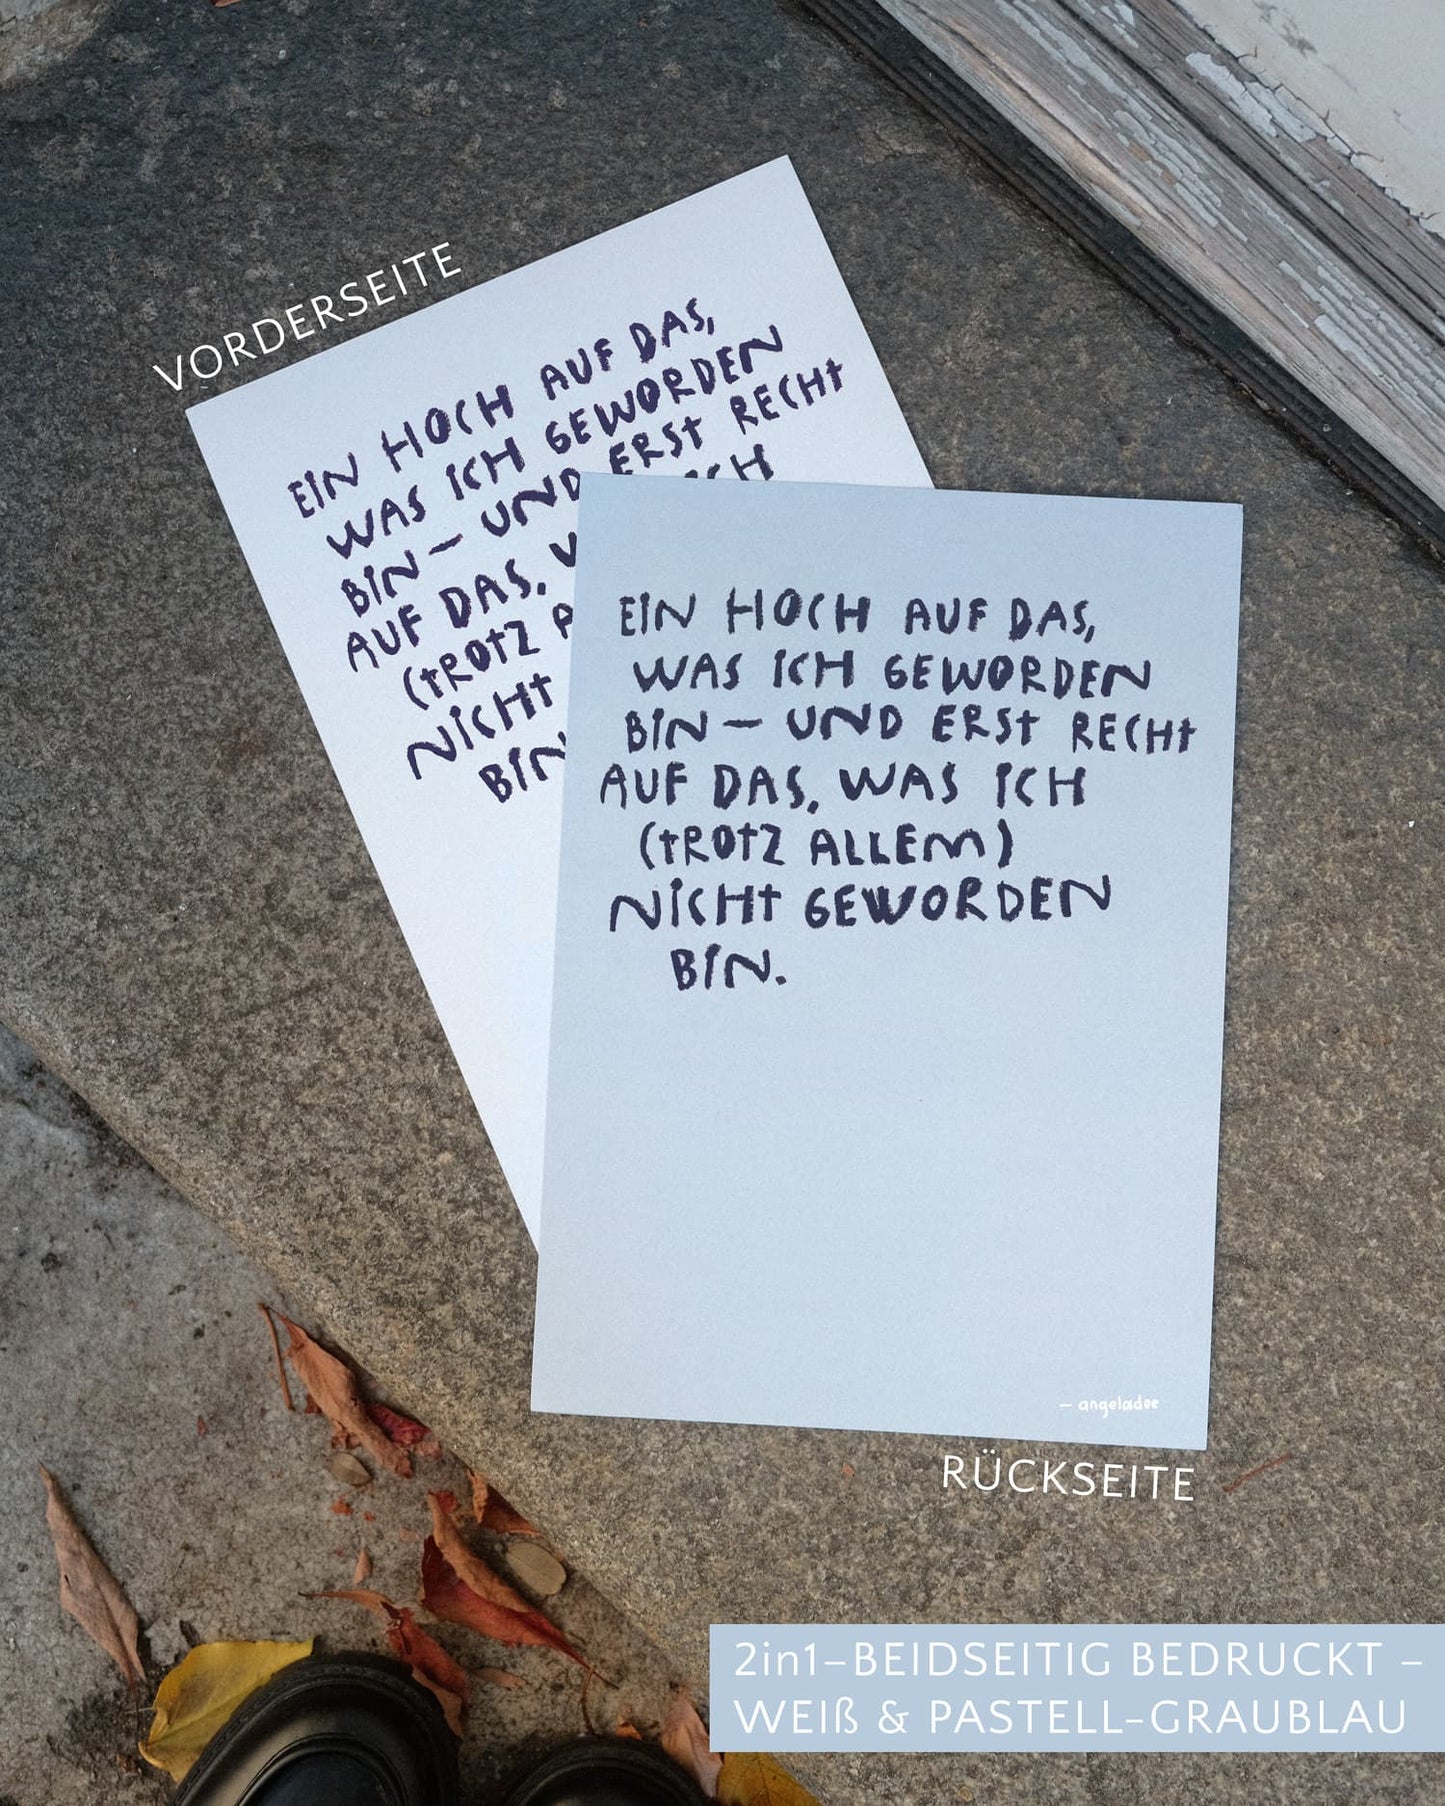 VORDERSEITE
EIN HOCH AUF DAS,
WAS ICH GEWORDEN
BIN – UND ERST RECHT
AUF DAS,
(TROTZ
NICHT
BIN
EIN HOCH AUF DAS,
WAS ICH GEWORDEN
BIN – UND ERST RECHT
AUF DAS, WAS ICH
(TROTZ ALLEM)
NICHT GEWORDEN
BIN.
– angeladoe
RÜCKSEITE
2in1–BEIDSEITIG BEDRUCKT –
WEIß & PASTELL-GRAUBLAU